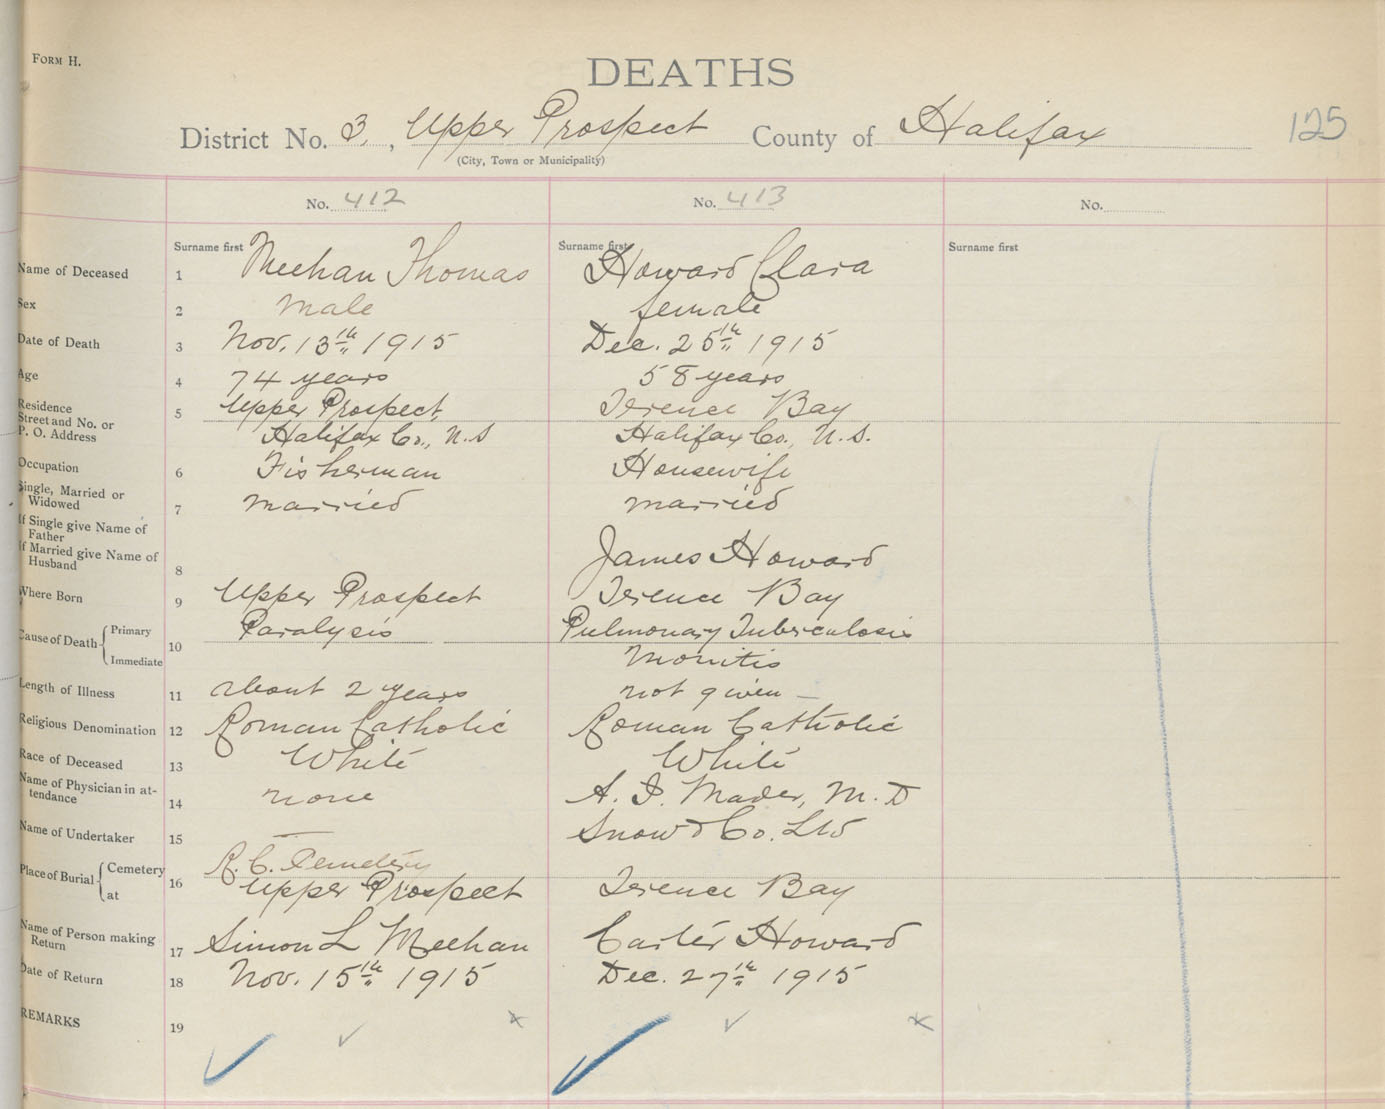 FORM H.
DEATHS
District No. 3, Upper Prospect County of Halifax
125
(City, Town or Municipality)
No. 412 No. 413 No.
Surname first Surname first Surname first
Name of Deceased 1 Meehan Thomas Howard Clara
Sex 2 Male female
Date of Death 3 Nov. 13th 1915 Dec. 25th 1915
Age 4 74 years 58 years
Residence 5 Upper Prospect, Terence Bay
Street and No. or
P. O. Address Halifax Co., N.S Halifax Co., N.S.
Occupation 6 Fisherman Housewife
Single, Married or
Widowed 7 married married
If Single give Name of
Father
If Married give Name of
Husband 8 James Howard
Where Born 9 Upper Prospect Terence Bay
Cause of Death Primary 10 Paralysis Pulmonary Tuberculosis
Immediate
Length of Illness 11 about 2 years not given –
Religious Denomination 12 Roman Catholic Roman Catholic
Race of Deceased 13 White White
Name of Physician in at-
tendance 14 none A. I. Mader, M.D
Name of Undertaker 15 — Snow & Co. Ltd
Place of Burial Cemetery 16 R. C. Cemetery
at Upper Prospect Terence Bay
Name of Person making
Return 17 Simon L Meehan Carter Howard
Date of Return 18 Nov. 15th 1915 Dec. 27th 1915
REMARKS 19